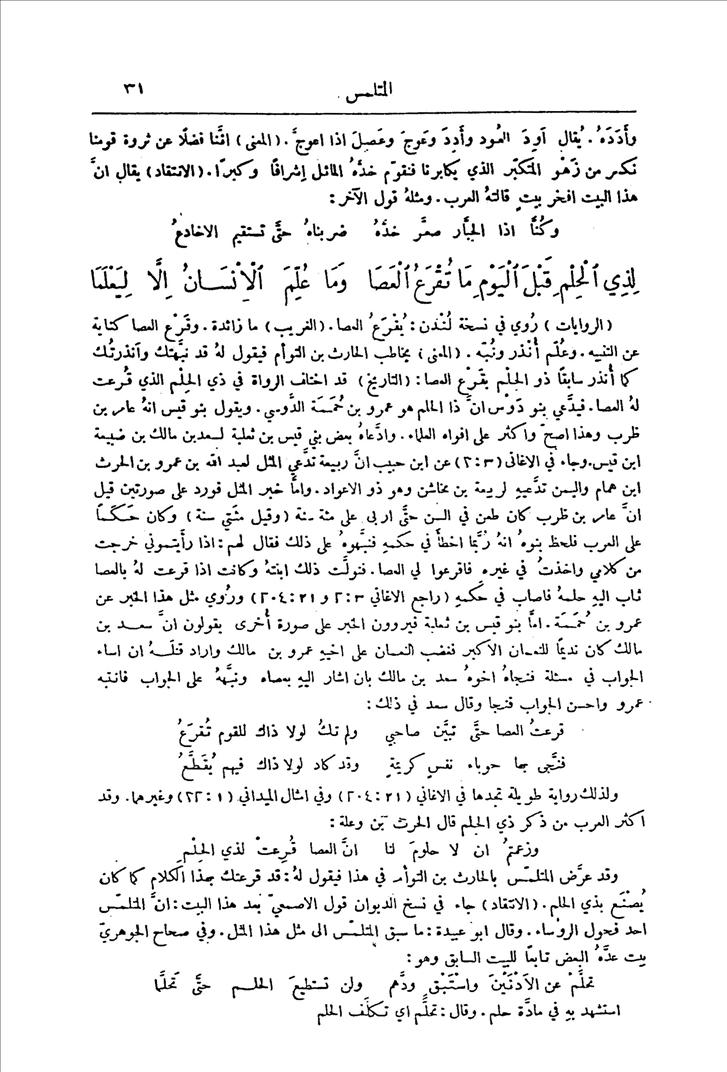 المتلمس ٣١
وأَدَدَهُ. يُقال أَوِدَ العُود وأَدِدَ وعَوِجَ وعَصِلَ اذا اعوجَّ. (المعنى) انَّنا فضلًا عن ثروة قومنا
نكسر من زَهْو المتكبّر الذي يكابرنا فنقوّم خدَّهُ المائل إشرافًا وكبرًا. (الانتقاد) يقال انَّ
هذا البيت افخر بيتٍ قالتهُ العرب. ومثلهُ قول الآخر:
وكُنَّا اذا الجبَّار صعَّر خدَّهُ ضربناهُ حتَّى تستقيم الاخادعُ
لِذِي ٱلْحِلْمِ قَبْلَ ٱلْيَوْمِ مَا تُقْرَعُ ٱلْعَصَا وَمَا عُلِّمَ ٱلْإِنْسَانُ إِلَّا لِيَعْلَمَا
(الروايات) رُوي في نسخة لُنْدن: يُقْرَعُ العصا. (الغريب) ما زائدة. وقَرْع العصا كناية
عن التنبيه. وعُلّم أُنْذر ونُبّه. (المعنى) يخاطب الحارث بن التوأم فيقول لهُ قد نبَّهتك وأنذرتُك
كما أُنذر سابقًا ذو الحِلْم بقَرْع العصا: (التاريخ) قد اختلف الرواة في ذي الحِلْم الذي قُرعت
لهُ العصا. فيدَّعي بنو دَوْس انَّ ذا الحلم هو عمرو بن حُمَمَة الدَّوسي. ويقول بنو قيس انهُ عامر بن
ظرب وهذا اصحّ واكثر على افواه العلماء. وادَّعاهُ بعض بني قيس بن ثعلبة لسعد بن مالك بن ضبيعة
ابن قيس. وجاء في الاغاني (٣:٢) عن ابن حبيب انَّ ربيعة تدَّعي المثل لعبد الله بن عمرو بن الحرث
ابن همام واليمن تدَّعيهِ لربيعة بن مخاشن وهو ذو الاعواد. وامَّا خبر المثل فورد على صورتين قيل
انَّ عامر بن ظرب كان طعن في السن حتَّى اربى على مئة سنة (وقيل مئتي سنة) وكان حَكَمًا
على العرب فلحظ بنوهُ انهُ رُبَّما اخطأَ في حكمهِ فنبَّهوهُ على ذلك فقال لهم: اذا رأيتموني خرجت
من كلامي واخذتُ في غيرهِ فاقرعوا لي العصا. فتولَّت ذلك ابنتهُ وكانت اذا قرعت لهُ بالعصا
ثاب اليهِ حلمهُ فاصاب في حُكمهِ (راجع الاغاني ٣:٢ و ٢١:٢٠٤) ورُوي مثل هذا الخبر عن
عمرو بن حُمَمَة. امَّا بنو قيس بن ثعلبة فيروون الخبر على صورة أُخرى يقولون انَّ سعد بن
مالك كان نديمًا للنعمان الأكبر فغضب النعمان على اخيهِ عمرو بن مالك واراد قتلهُ ان اساء
الجواب في مسئلة فنجاهُ اخوهُ سعد بن مالك بان اشار اليهِ بعصاه ونبَّههُ على الجواب فانتبه
عمرو واحسن الجواب فنجا وقال سعد في ذلك:
قرعتُ العصا حتَّى تبيَّن صاحبي ولم تكُ لولا ذاك للقوم تُقرَعُ
فنجَّى بها حوباء نفسٍ كريمةٍ وقد كاد لولا ذاك فيهم يُقَطَّعُ
ولذلك رواية طويلة تجدها في الاغاني (٢١:٢٠٤) وفي امثال الميداني (١:٢٢) وغيرهما. وقد
اكثر العرب من ذكر ذي الحِلم قال الحرث بن وعلة:
وزعمتمُ ان لا حلومَ لنا انَّ العصا قُرِعتْ لذي الحِلْمِ
وقد عرَّض المتلمّس بالحارث بن التوأم في هذا فيقول لهُ: قد قرعتك بهذا الكلام كما كان
يُصْنَع بذي الحلم. (الانتقاد) جاء في نسخ الديوان قول الاصمعيّ بعد هذا البيت: انَّ المتلمّس
احد فحول الرؤساء. وقال ابو عبيدة: ما سبق المتلمّس الى مثل هذا المثل. وفي صحاح الجوهريّ
بيت عدَّهُ البعض تابعًا للبيت السابق وهو:
تحلَّمْ عن الأَدْنَيْنَ واسْتَبْقِ ودَّهم ولن تستطيعَ الحلم حتَّى تحلَّما
استشهد بهِ في مادَّة حلم. وقال: تحلَّم اي تكلَّف الحلم